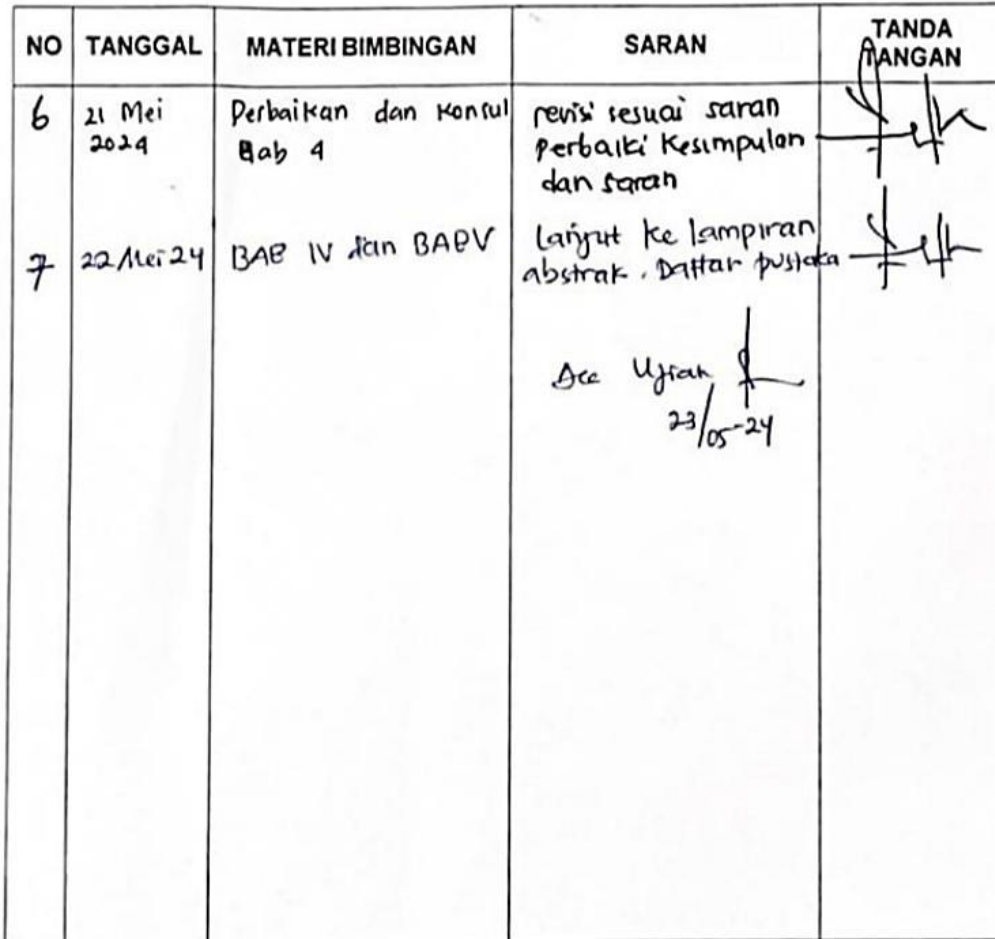 NO TANGGAL MATERI BIMBINGAN SARAN TANDA TANGAN
6 21 Mei 2024 Perbaikan dan Konsul Bab 4 revisi sesuai saran
perbaiki Kesimpulan
dan saran
7 22 Mei 24 BAB IV dan BAB V Lanjut ke lampiran
abstrak. Daftar pustaka
Acc Ujian
23/05-24